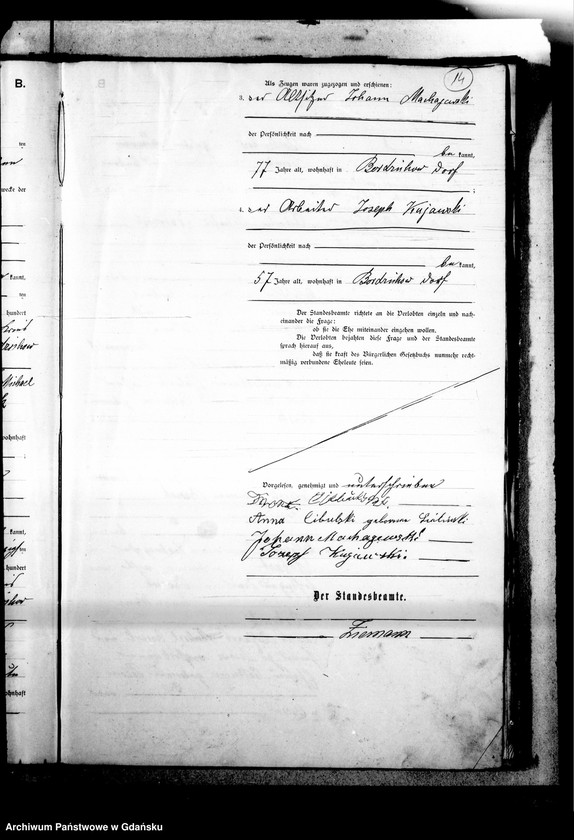 B.
14
Als Zeugen waren zugezogen und erschienen:
3. der Altsitzer Johann Machajewski
der Persönlichkeit nach
be kannt,
77 Jahre alt, wohnhaft in Bordzichow Dorf
;
4. der Arbeiter Joseph Kujawski
der Persönlichkeit nach
be kannt,
57 Jahre alt, wohnhaft in Bordzichow Dorf
Der Standesbeamte richtete an die Verlobten einzeln und nach-
einander die Frage:
ob sie die Ehe miteinander eingehen wollen.
Die Verlobten bejahten diese Frage und der Standesbeamte
sprach hierauf aus,
daß sie kraft des Bürgerlichen Gesetzbuchs nunmehr recht-
mäßig verbundene Eheleute seien.
Vorgelesen, genehmigt und unterschrieben
Franz
Anna Cibulski geborene
Johann Machajewski
Jozepf Kujawski.
Der Standesbeamte.
Ziemann
ten
wecke der
kannt,
ten
hundert
Michael
wohnhaft
kannt,
hundert
wohnhaft
Archiwum Państwowe w Gdańsku